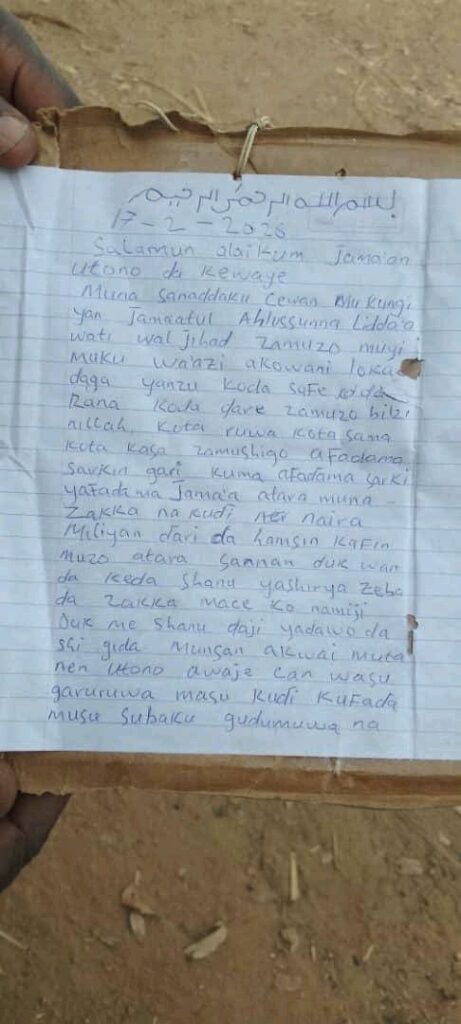 بسم الله الرحمن الرحيم
17-2-2026
Salamun alaikum Jama'an
Utono da Kewaye
Muna sanaddaku Cewan Mu Kungi
yan Jama'atul Ahlussunna Lidda'a
wati wal Jihad zamuzo muyi
muku wa'azi akowani loka
daga yanzu koda safe
Rana koda dare zamuzo bilzi
nillah, kota ruwa kota sama
kota kasa zamushigo afadama
sarkin gari kuma afadama sarki
yafada ma Jama'a atara muna
Zakka na kudi naira
Miliyan dari da hamsin kafin
muzo atara sannan duk wan
da keda shanu yashirya zeba
da zakka mace ko namiji
Duk me shanu daji yadawo da
shi gida munsan akwai muta
nen Utono awaje can wasu
garuruwa masu kudi kufada
musu subaku gudumuwa na